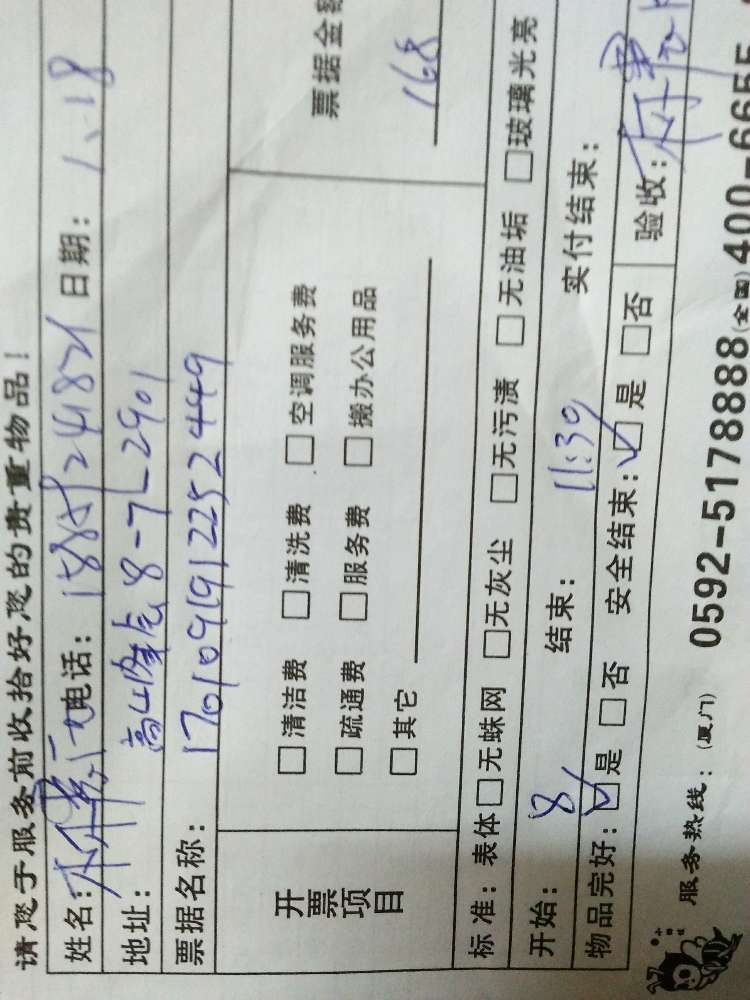 请您于服务前收拾好您的贵重物品!
姓名: 电话: 日期: 1.18
地址: 8-7-2901
票据名称: 1701091912252449
开票项目
□清洁费 □清洗费 □空调服务费
□疏通费 □服务费 □搬办公用品
□其它
票据金额
168
标准: 表体□无蛛网 □无灰尘 □无污渍 □无油垢 □玻璃光亮
开始: 8 结束: 11:30 实付结束:
物品完好: ☑是 □否 安全结束: ☑是 □否 验收:
服务热线: (厦门) 0592-5178888(全国)400-6655